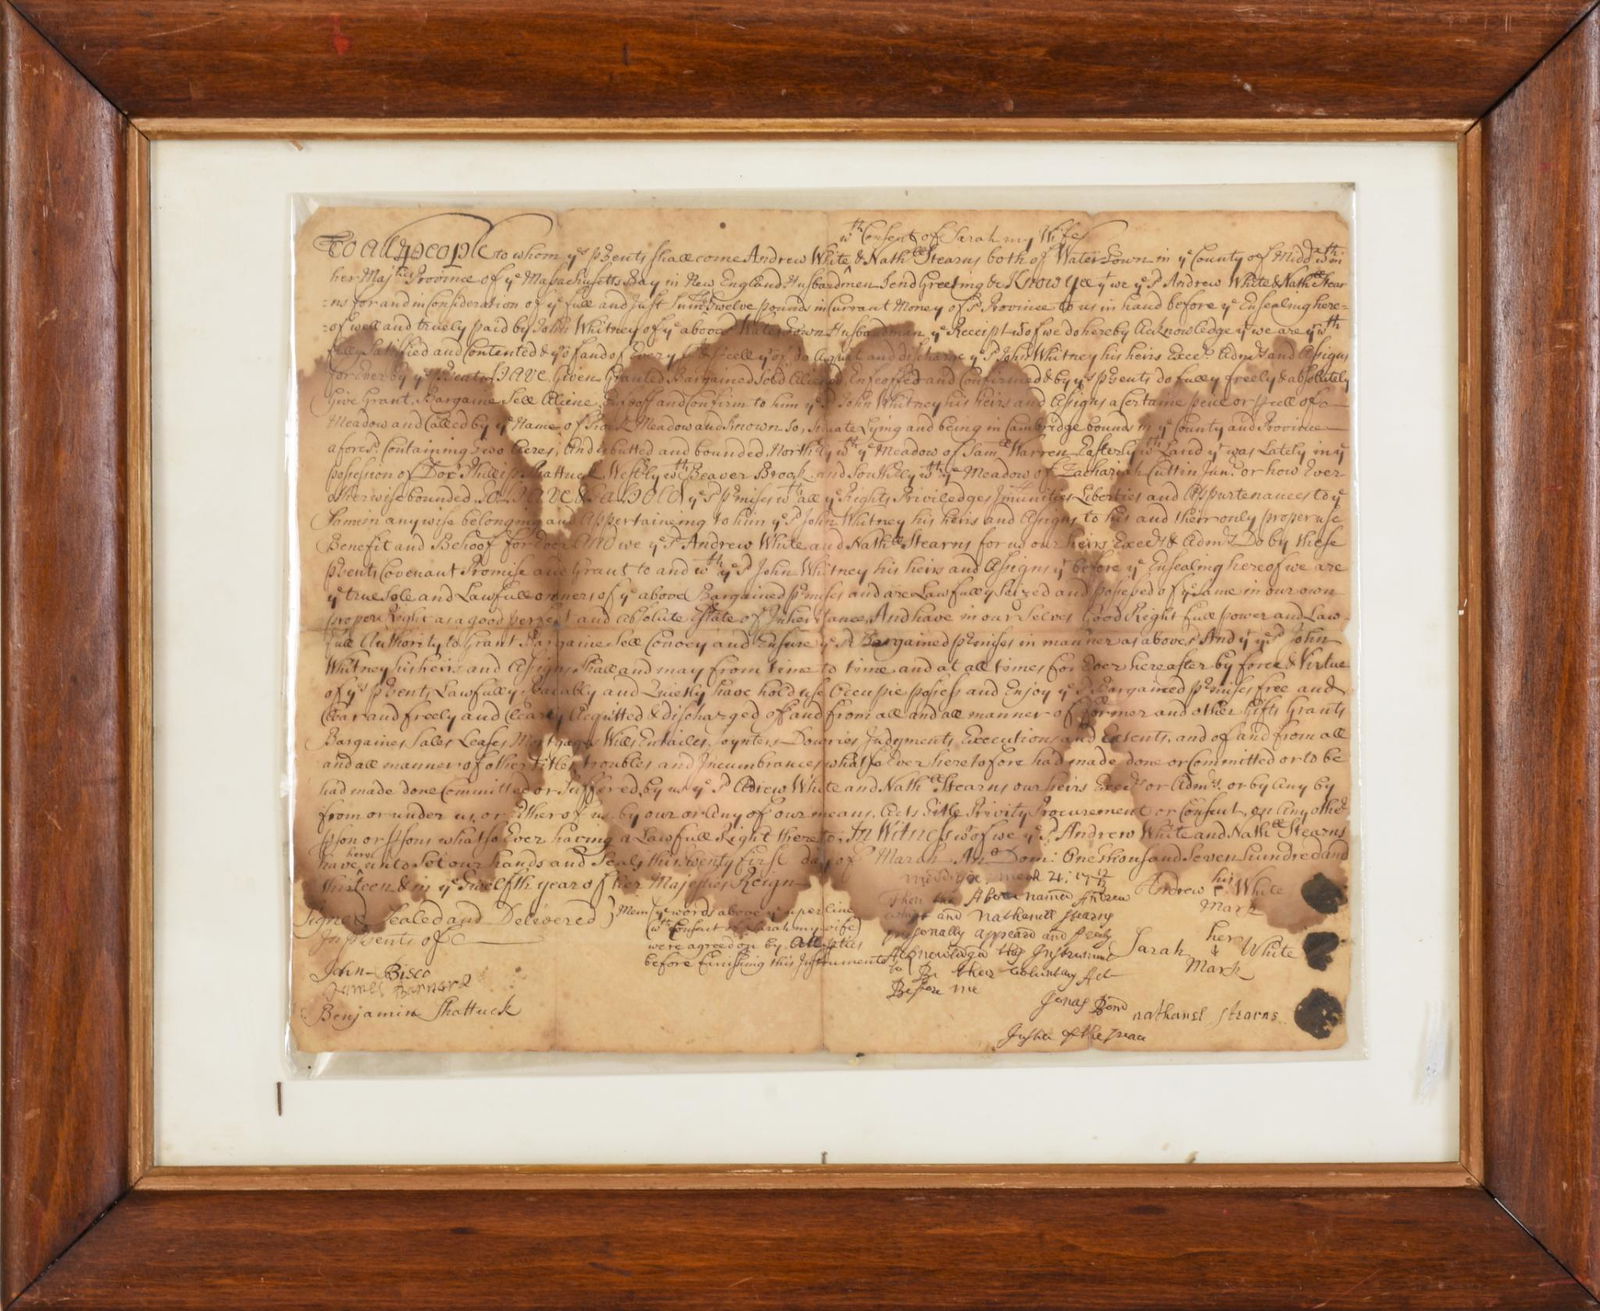 wth Consent of Sarah my Wife
To all people to whom ye prsents shall come Andrew White & Nathll Stearns both of WaterTown in ye County of Midd wthin
her Majties Province of ye Massachusetts Bay in New England Husbandmen Send Greeting &c Know Yee yt we ye sd Andrew White & Nathll Stear
=ns for and in Consideration of ye full and Just Sum Twelve pounds in Currant Money of sd Province to us in hand before ye Ensealing here=
=of well and truely paid by John Whitney of ye above sd WaterTown Husbandman ye Receipt wof we do hereby Acknowledge yt we are yrwth
fully Satisfied and Contented & yrof and of Every prt & prcell yrof do Acquit and discharge ye sd John Whitney his heirs Execrs Admrs and Assigns
for Ever by ye prsents HAVE Given Granted Bargained Sold Aliened Enfeoffed and Confirmed & by ys prsents do fully freely & absolutely
Give Grant Bargaine Sell Aliene Enfeoff and Confirm to him ye sd John Whitney his heirs and Assigns a Certaine peice or prcell of
Meadow and Called by ye Name of Meadow and Known so, Situate Lying and being in Cambridge bounds in ye County and Province
aforesd Containing two Acres, And butted and bounded Northly wth ye Meadow of Samll Warren Easterly wth Land yt was Lately in ye
possesion of Docr Phillip Shattuck Westly wth Beaver Brook and Southly wth ye Meadow of Zachariah Cuttin Junr or how Ever
otherwise bounded To HAVE & To HOLD ye sd prmises wth all ye Rights Priviledges Imunities Liberties and Appurtenances to ye
Same in any wise belonging and Appertaineing to him ye sd John Whitney his heirs and Assigns to his and their only proper use
Benefit and Behoof for Ever And we ye sd Andrew White and Nathll Stearns for us our heirs Execrs & Admrs Do by these
prsents Covenant Promise and Grant to and wth ye sd John Whitney his heirs and Assigns yt before ye Ensealing hereof we are
ye true Sole and Lawfull owners of ye above Bargained prmises and are Lawfully Seized and possesed of ye same in our own
proper Right as a good perfect and absolute Estate of Inheritance And have in our Selves Good Right full power and Law-
full Authority to Grant Bargaine Sell Convey and Ensure ye sd Bargained prmises in manner as abovesd And yt ye sd John
Whitney his heirs and Assigns Shall and may from time to time and at all times for Ever hereafter by force & Virtue
of ys prsents Lawfully Peacably and Quietly have hold use Occupie posess and Enjoy ye sd Bargained prmises free and
Clear and freely and Clearly Acquitted & discharged off and from all and all manner of former and other Gifts Grants
Bargaines Sales Leases Mortgages Wills Entailes, Joynters Dowries Judgments Executions and Extents, and of and from all
and all manner of other titles troubles and Incumbrances whatso Ever heretofore had made done or Committed or to be
had made done Committed or Suffered by us ye sd Adrew White and Nathll Stearns our heirs Execrs or Admrs, or by Any by
from or under us, or Either of us, by our or Any of our means, Acts Title Privity Procurement or Consent, or Any other
prson or prsons whatso Ever having a Lawfull Right thereto In Witness wof we ye sd Andrew White and Nathll Stearns
have here unto Set our hands and Seals this twenty first day of March Ano Dom: One thousand Seven hundred and
thirteen & in ye Twelfth year of her Majesties Reign
Signed Sealed and Delivered
In prsents of
John Bisco
James Barnard
Benjamin Shattuck
Mem ye words above ye uperline
(wth Consent of Sarah my wife)
were agreed on by All
before finishing this Instrument
March 21: 1712/13
Then the Above named Andrew
White and Nathaniell Stearns
personally appeard and freely
Acknowledged this Instrument
to Be their voluntary Act
Before me
Jonas Bond
Justice of the peace
Andrew his White
Mark
Sarah her White
Mark
nathanel stearns